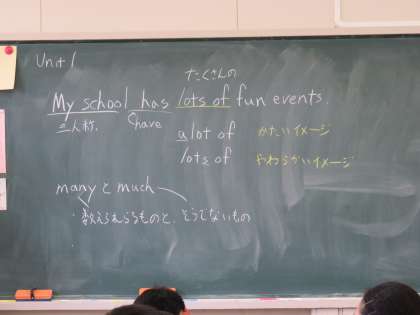 Unit 1
たくさんの
My school has lots of fun events.
三人称. have
a lot of かたいイメージ
lots of やわらかいイメージ
many と much
・数えられるものと、そうでないもの